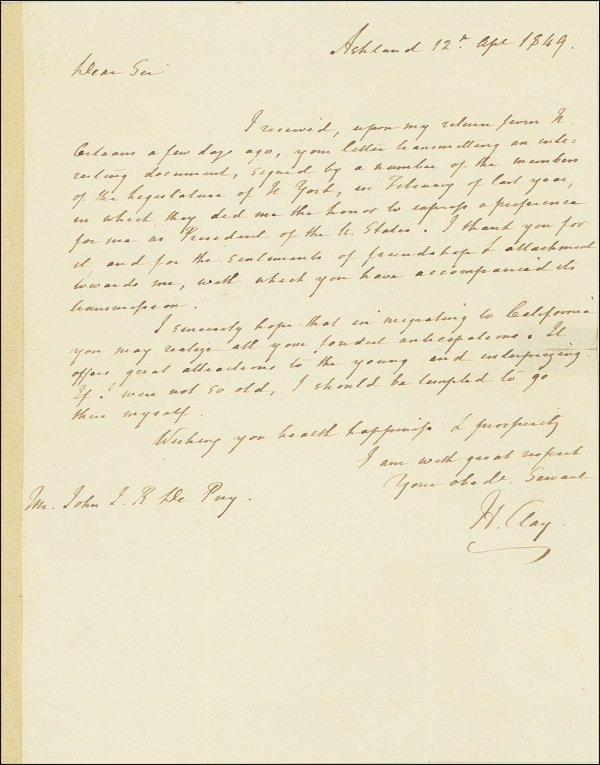 Ashland 12th Apl 1849.
Dear Sir
I received, upon my return from N.
Orleans a few days ago, your letter transmitting an inte=
resting document, signed by a number of the members
of the Legislature of N. York, in February of last year,
in which they did me the honor to express a preference
for me as President of the U. States. I thank you for
it and for the sentiments of friendship & attachment
towards me, with which you have accompanied its
transmission.
I sincerely hope that in migrating to California
you may realize all your fondest anticipations. It
offers great attractions to the young and enterprizing.
If I were not so old, I should be tempted to go
there myself.
Wishing you health happiness & prosperity
I am with great respect
Your obedt. Servant
H. Clay.
Mr. John I. R. De Puy.